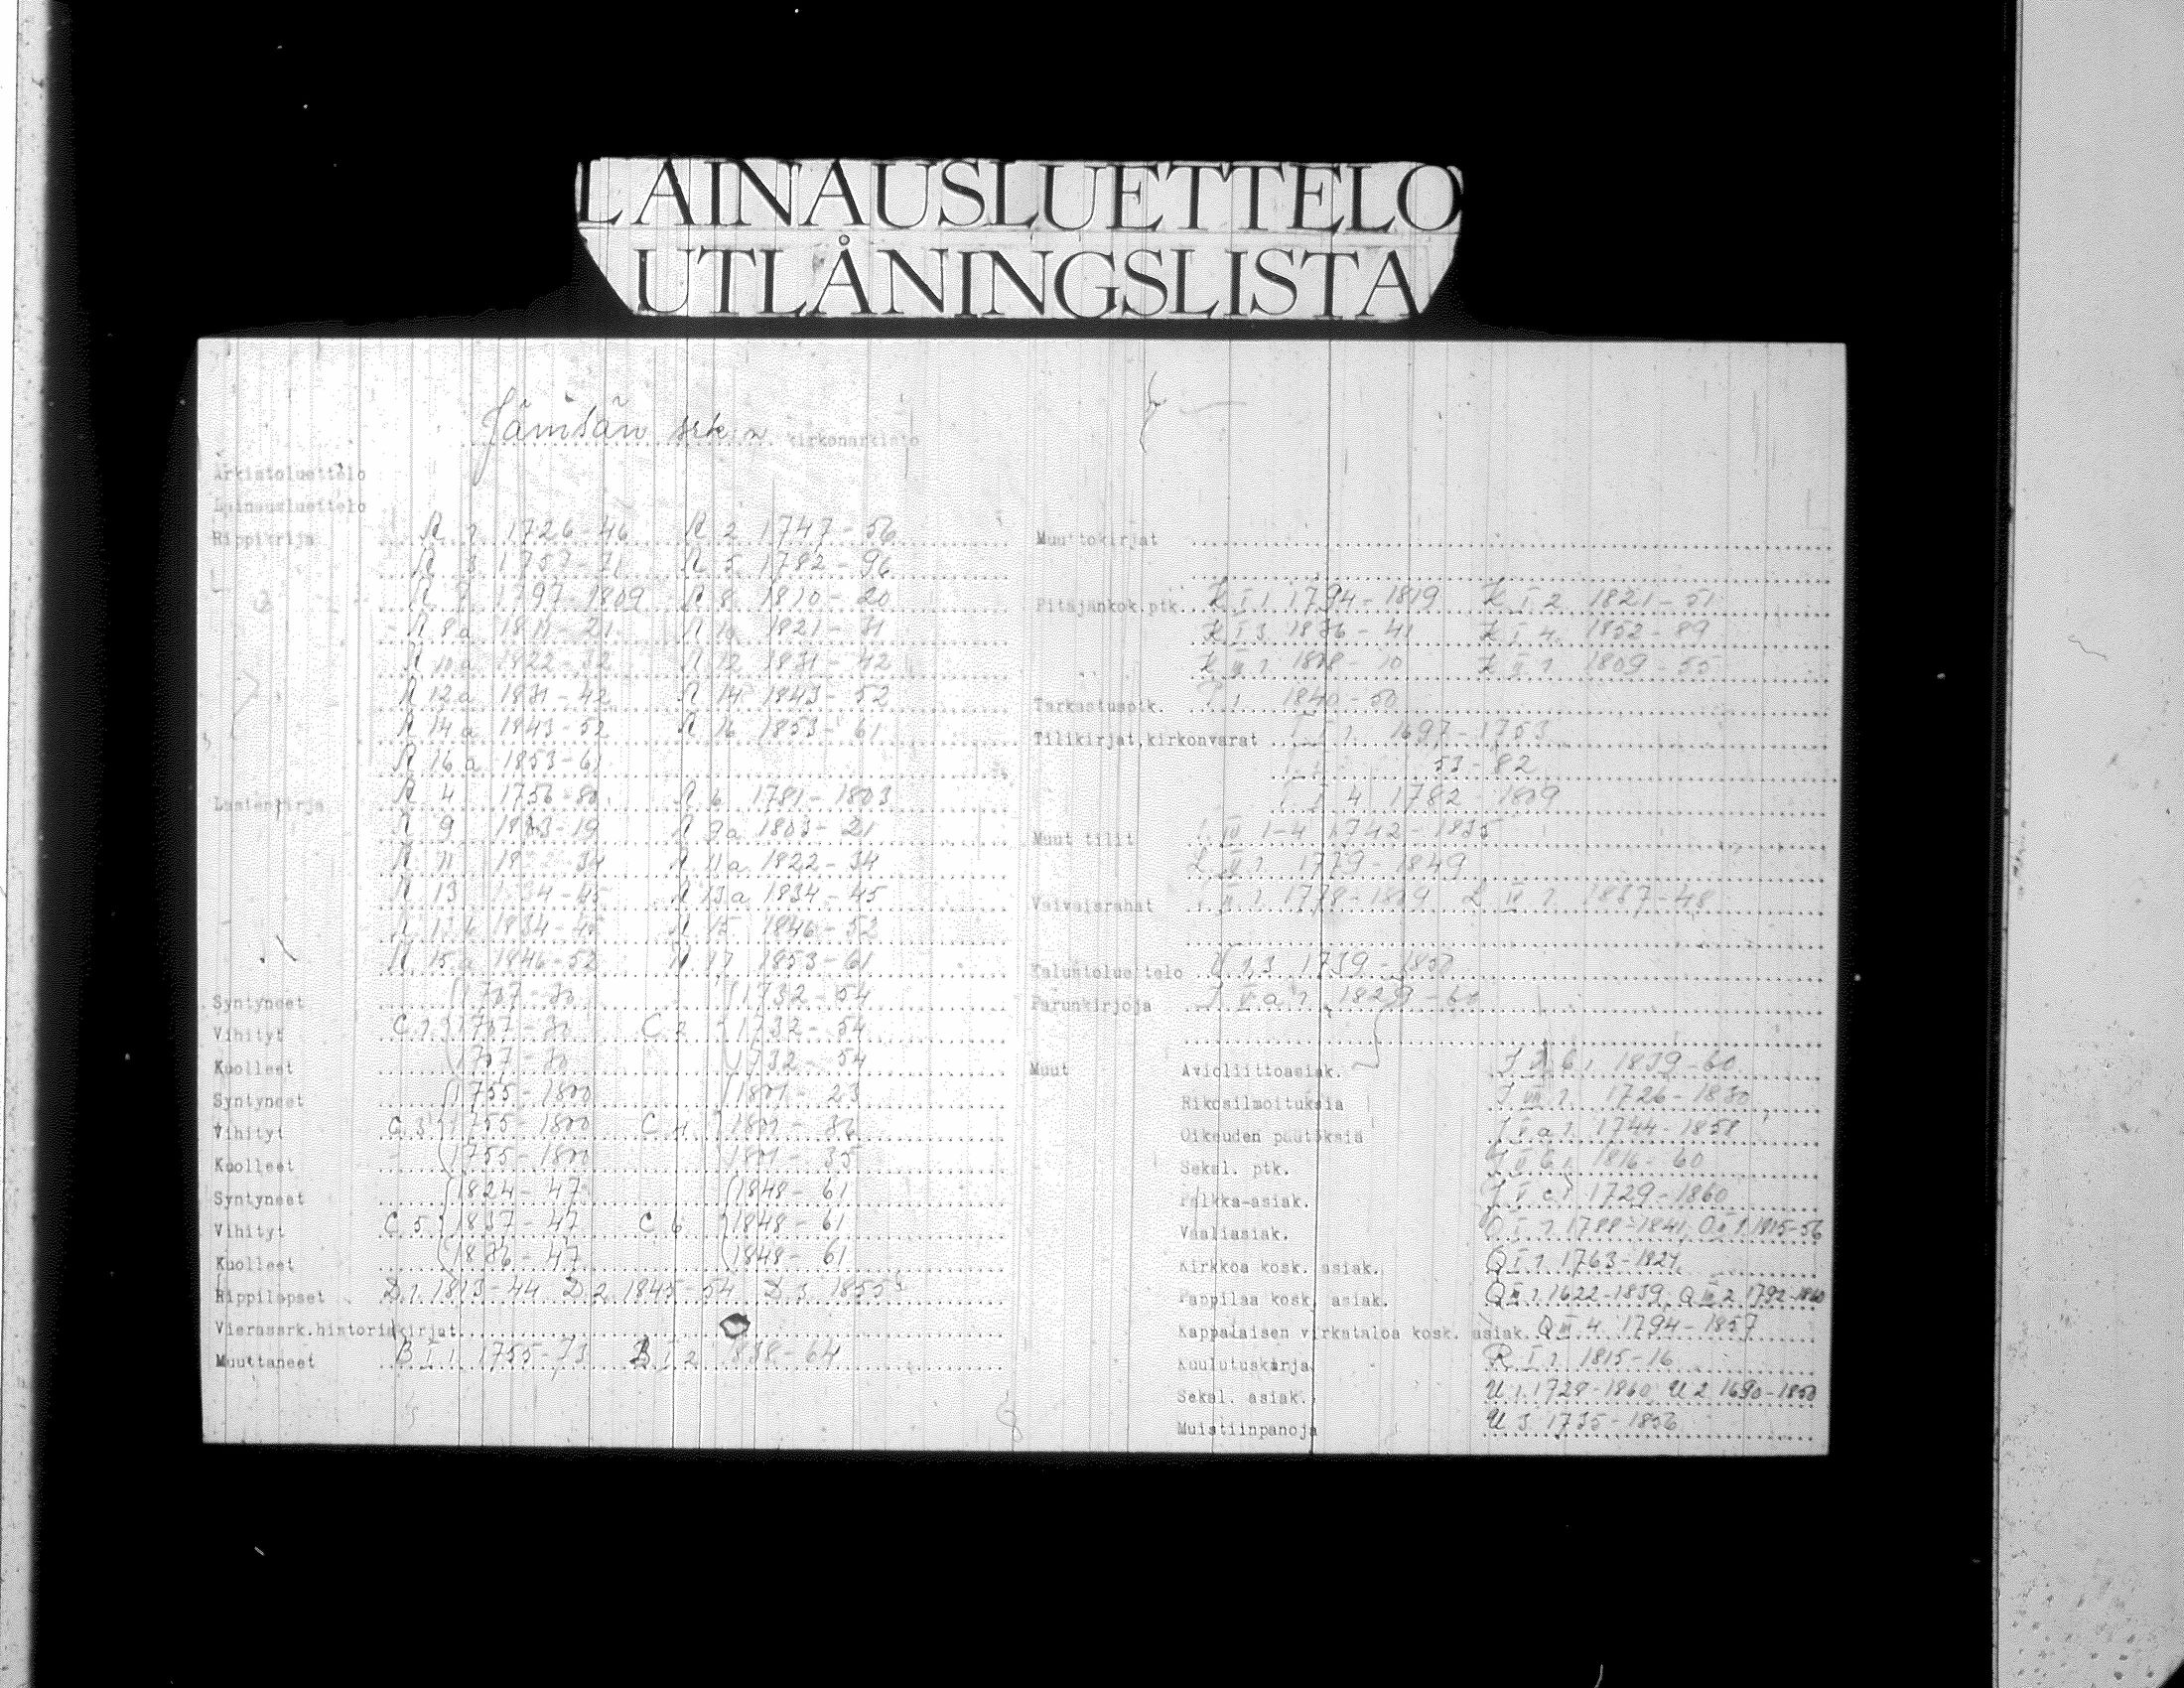 LAINAUSLUETTELO
UTLÅNINGSLISTA
Jämsän srk:n kirkonarkisto
Arkistoluettelo
Lainausluettelo
Rippikirja R 1 1726-46 R 2 1747-56
R 3 1757-71 R 5 1782-96
R 7 1797-1809 R 8 1810-20
R 8a 1811-21 R 10 1821-31
R 10a 1822-32 R 12 1831-42
R 12a 1831-42 R 14 1843-52
R 14a 1843-52 R 16 1853-61
R 16a 1853-61
Lastenkirja R 4 1756-80 R 6 1781-1803
R 9 1803-19 R 9a 1803-21
R 11 34 R 11a 1822-34
R 13 34-45 R 13a 1834-45
R 13b 1834-45 R 15 1846-52
R 15a 1846-52 R 17 1853-61
Syntyneet 1707-30 1732-54
Vihityt C 1 1707-30 C 2 1732-54
Kuolleet 1707-30 1732-54
Syntyneet 1755-1800 1801-23
Vihityt C 3 1755-1800 C 4 1801-36
Kuolleet 1755-1800 1801-35
Syntyneet 1824-47 1848-61
Vihityt C 5 1837-47 C 6 1848-61
Kuolleet 1836-47 1848-61
Rippilapset D 1 1813-44 D 2 1845-54 D 3 1855
Vierassrk.historiakirjat
Muuttaneet B I 1 1755-73 B I 2 1838-64
Muuttokirjat
Pitäjänkok.ptk. K I 1 1794-1819 K I 2 1821-51
K I 3 1836-41 K I 4 1852-89
K III 1 1808-10 K II 1 1809-55
Tarkastusptk. 1840-50
Tilikirjat,kirkonvarat 1697-1753
53-82
4 1782-1809
Muut tilit 1-4 1742-1835
1779-1849
Vaivaisrahat 1778-1809 1837-48
Kalustoluettelo 1739-1857
Perunkirjoja 1829-60
Muut Avioliittoasiak. 1839-60
Rikosilmoituksia J VII 1 1726-1830
Oikeuden päätöksiä J V a 1 1744-1858
Sekal. ptk. 1816-60
Palkka-asiak. J V c 1 1729-1860
Vaaliasiak. O I 1 1788-1841, O II 1 1815-56
Kirkkoa kosk. asiak. Q I 1 1763-1824
Pappilaa kosk. asiak. Q III 1 1622-1839, Q III 2 1792-1860
Kappalaisen virkataloa kosk. asiak. Q III 4 1794-1857
Kuulutuskirja R I 1 1815-16
Sekal. asiak. U 1 1728-1860 U 2 1690-1850
Muistiinpanoja U 3 1735-1856